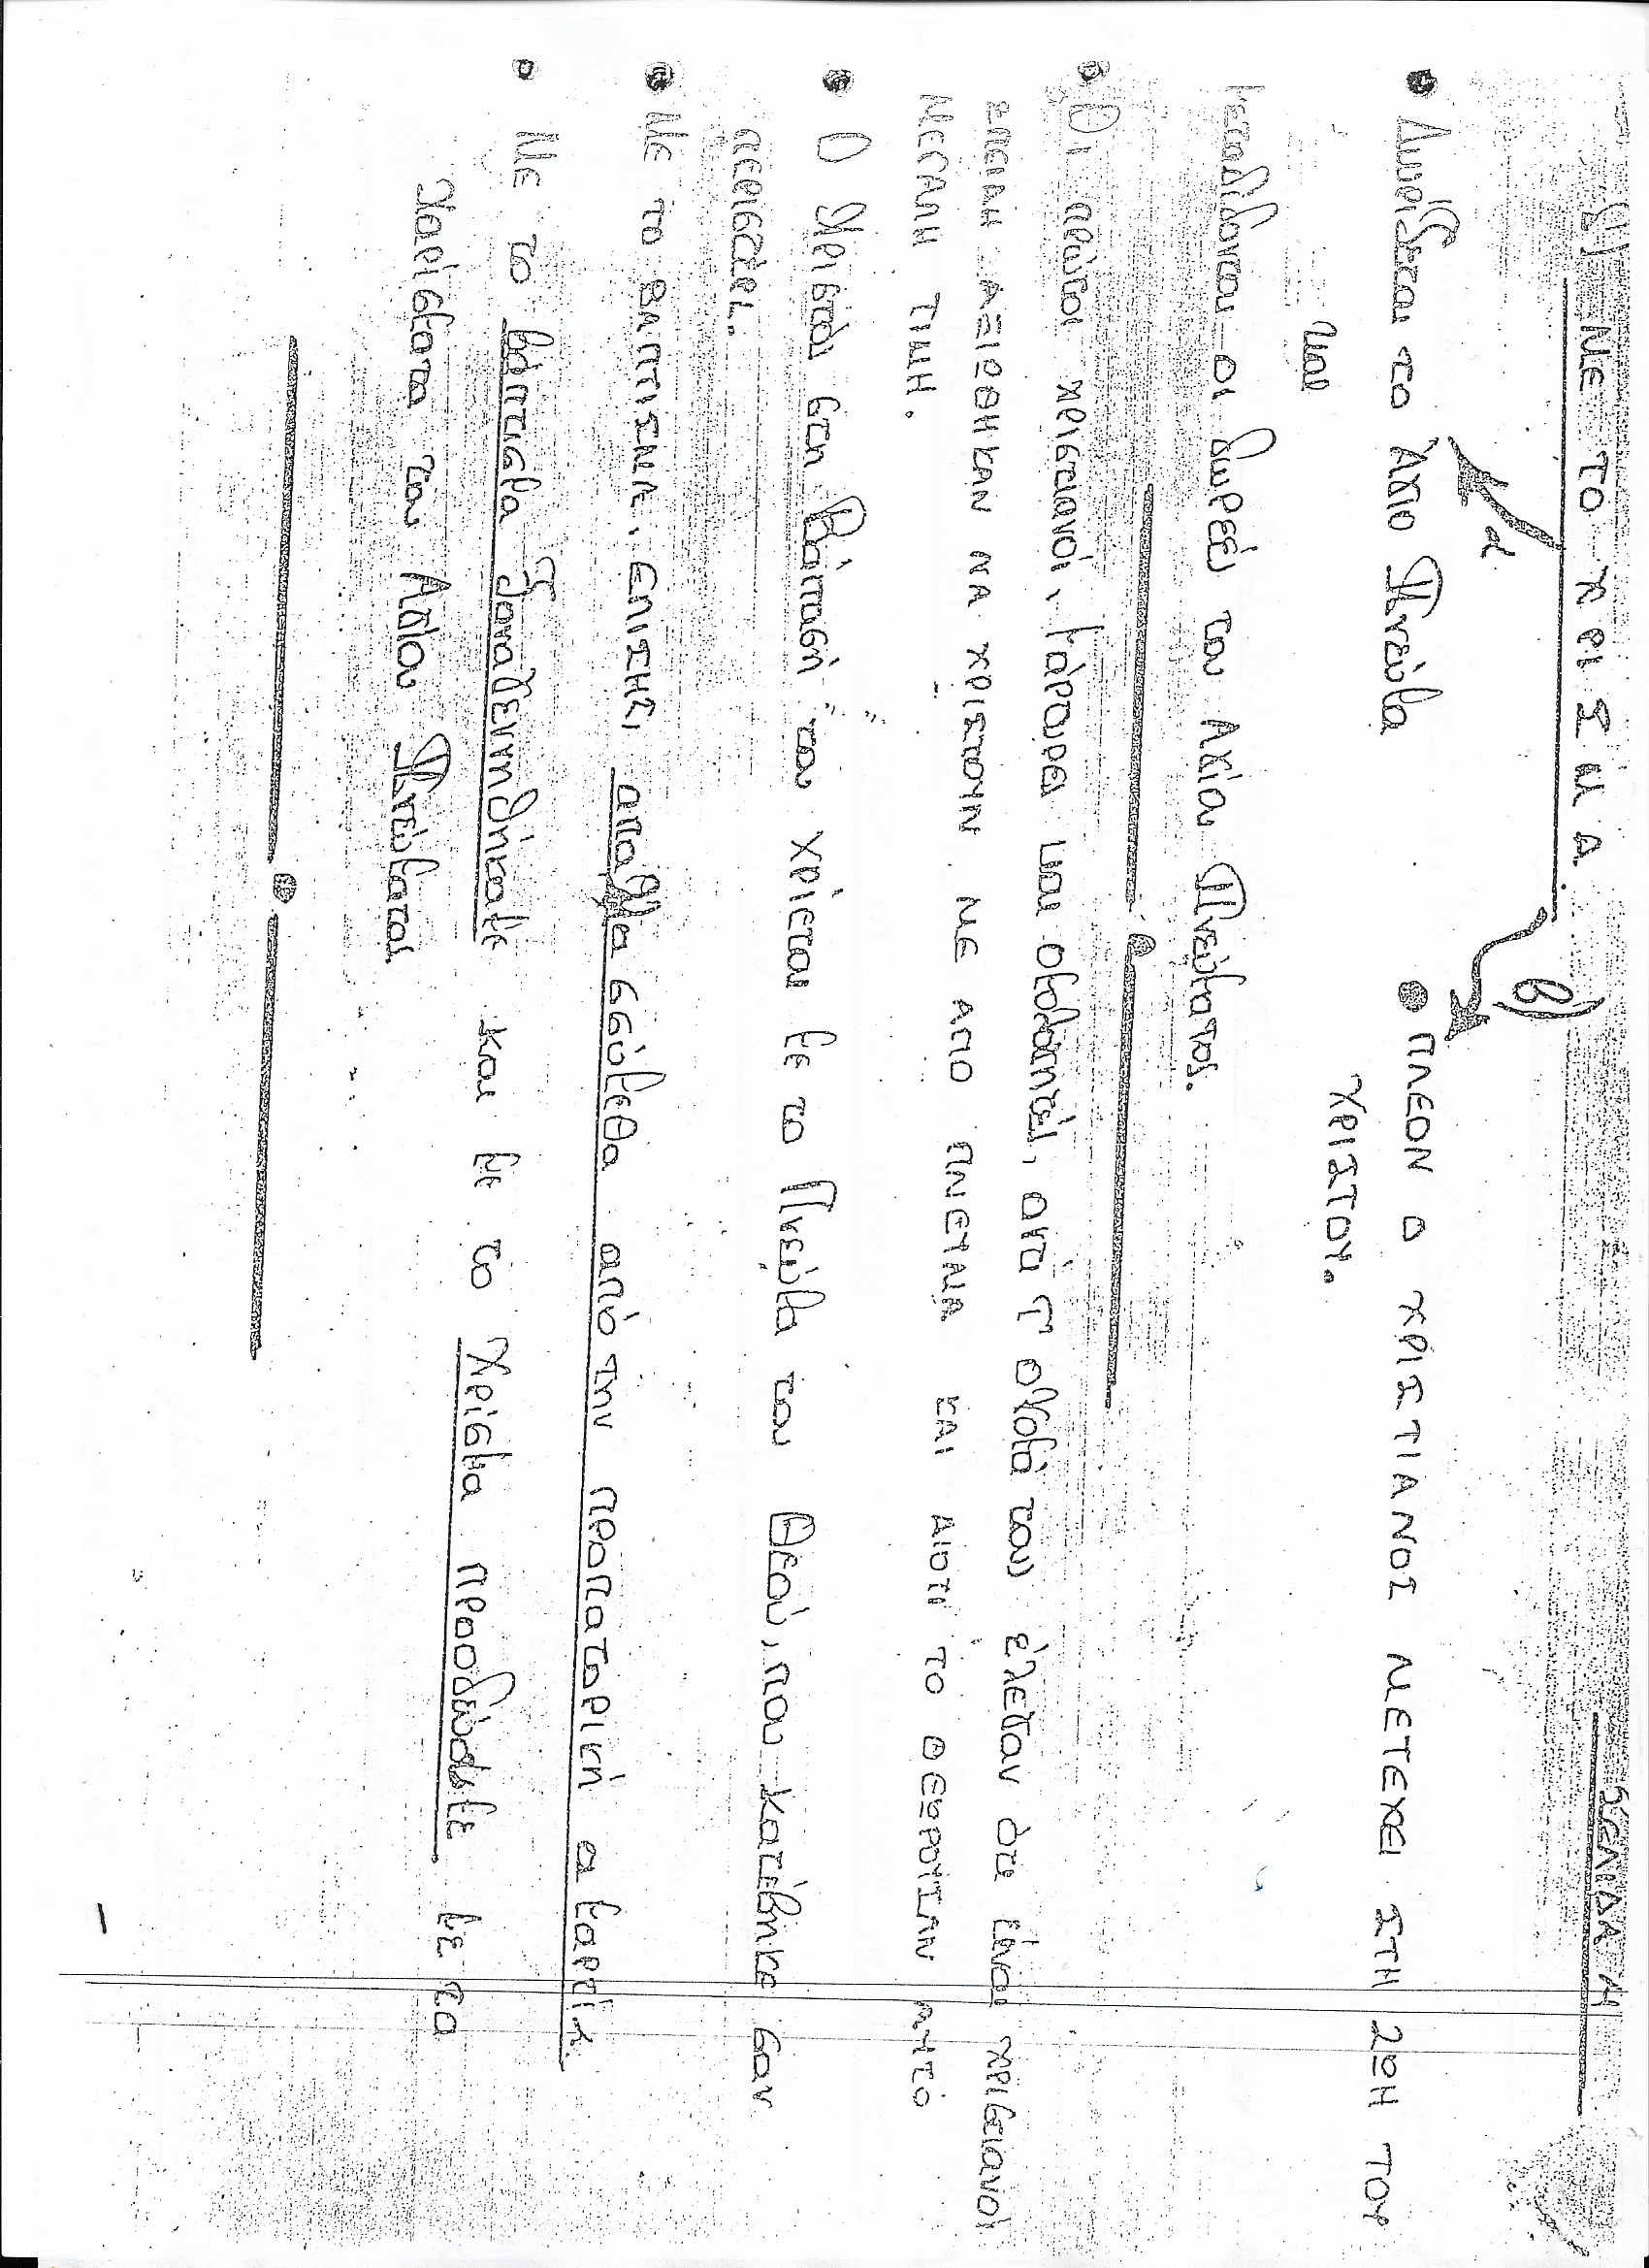 ΣΕΛΙΔΑ 4
γ) ΜΕ ΤΟ ΧΡΙΣΜΑ
α
β)
• Δωρίζεται το Άγιο Πνεύμα
και
• ΠΛΕΟΝ Ο ΧΡΙΣΤΙΑΝΟΣ ΜΕΤΕΧΕΙ ΣΤΗ ΖΩΗ ΤΟΥ
ΧΡΙΣΤΟΥ.
μεταδίδονται οι δωρεές του Αγίου Πνεύματος.
• Οι πρώτοι χριστιανοί, μάρτυρες και ομολογητές, αντί τ' όνομά τους έλεγαν ότι είναι χριστιανοί
ΕΠΕΙΔΗ ΑΞΙΩΘΗΚΑΝ ΝΑ ΧΡΙΣΤΟΥΝ ΜΕ ΑΠΟ ΠΝΕΥΜΑ ΚΑΙ ΔΙΟΤΙ ΤΟ ΘΕΩΡΟΥΣΑΝ ΑΥΤΟ
ΜΕΓΑΛΗ ΤΙΜΗ.
• Ο Χριστός στη Βάπτισή του χρίεται με το Πνεύμα του Θεού, που κατέβηκε σαν
περιστέρι.
• ΜΕ ΤΟ ΒΑΠΤΙΣΜΑ, ΕΠΙΣΗΣ, απαλλασσόμεθα από την προπατορική αμαρτία.
• ΜΕ το βάπτισμα ξαναγεννηθήκαμε και με το Χρίσμα προοδεύσαμε με τα
χαρίσματα του Αγίου Πνεύματος